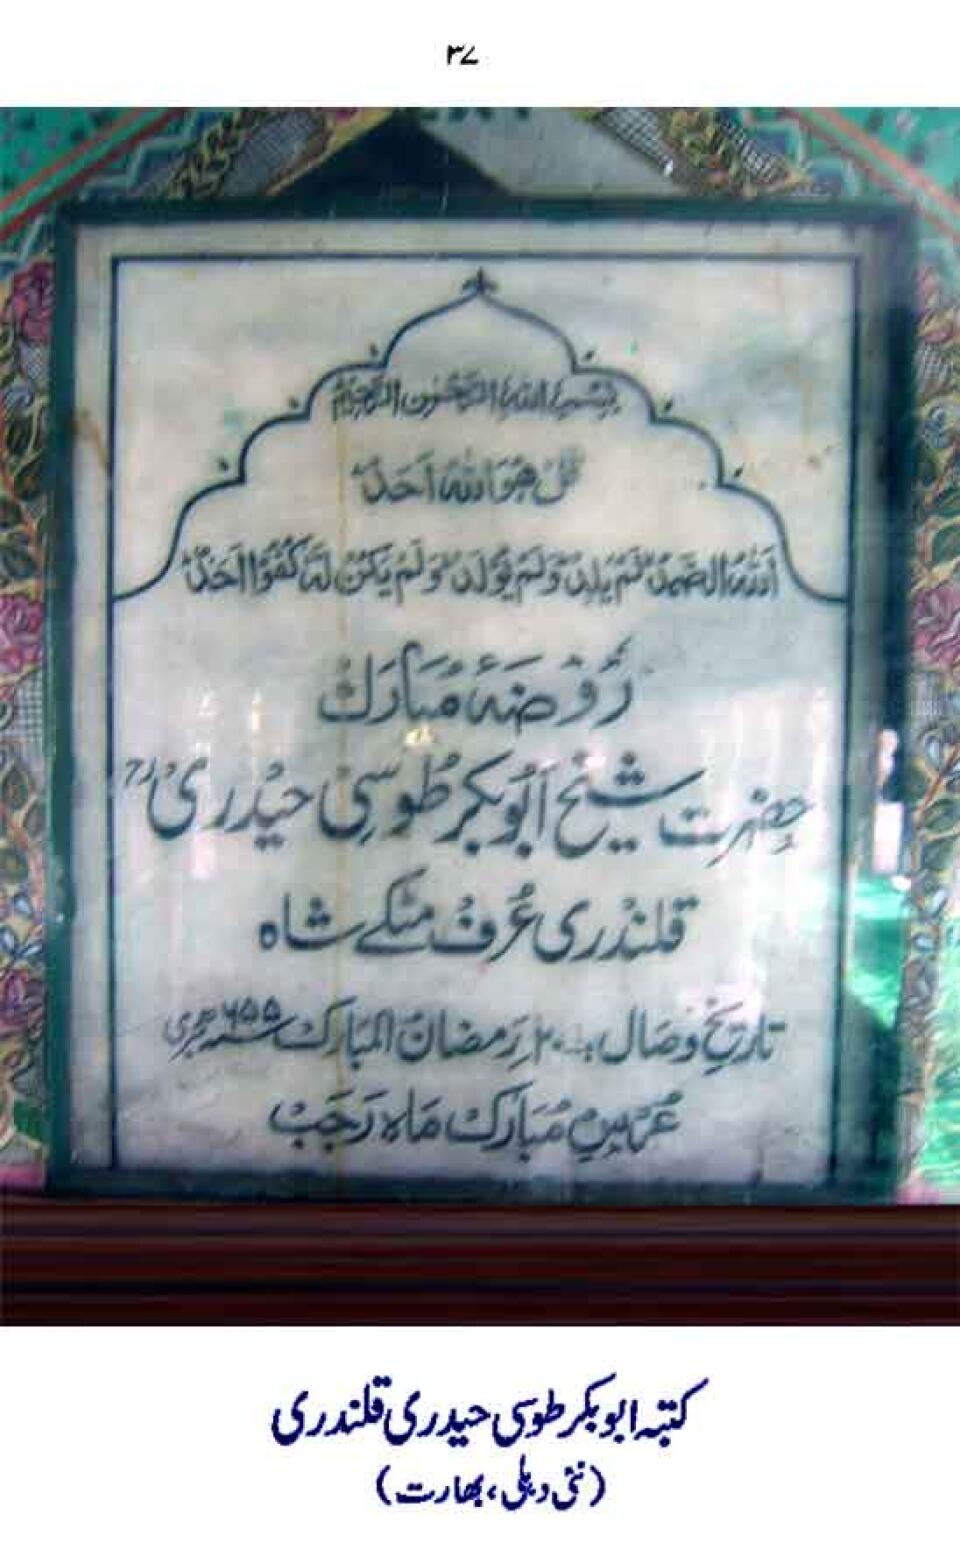 ۳۷
بِسْمِ اللهِ الرَّحْمٰنِ الرَّحِيْمِ
قُلْ هُوَ اللهُ اَحَدٌ
اَللهُ الصَّمَدُ لَمْ يَلِدْ وَلَمْ يُوْلَدْ وَلَمْ يَكُنْ لَهٗ كُفُوًا اَحَدٌ
رَوْضَۂ مُبَارَکْ
حضرت شیخ اَبُو بکر طُوسِیْ حیْدری رح
قلنْدری عُرفْ مٹکے شاہ
تاریخِ وصال ۲۰؍ رَمضانُ المبَارک سنہ ۶۵۵ ہجری
عُرسِ مُبَارک مَاہ رَجَبْ
کتبہ ابو بکر طوسی حیدری قلندری
(نئی دہلی، بھارت)